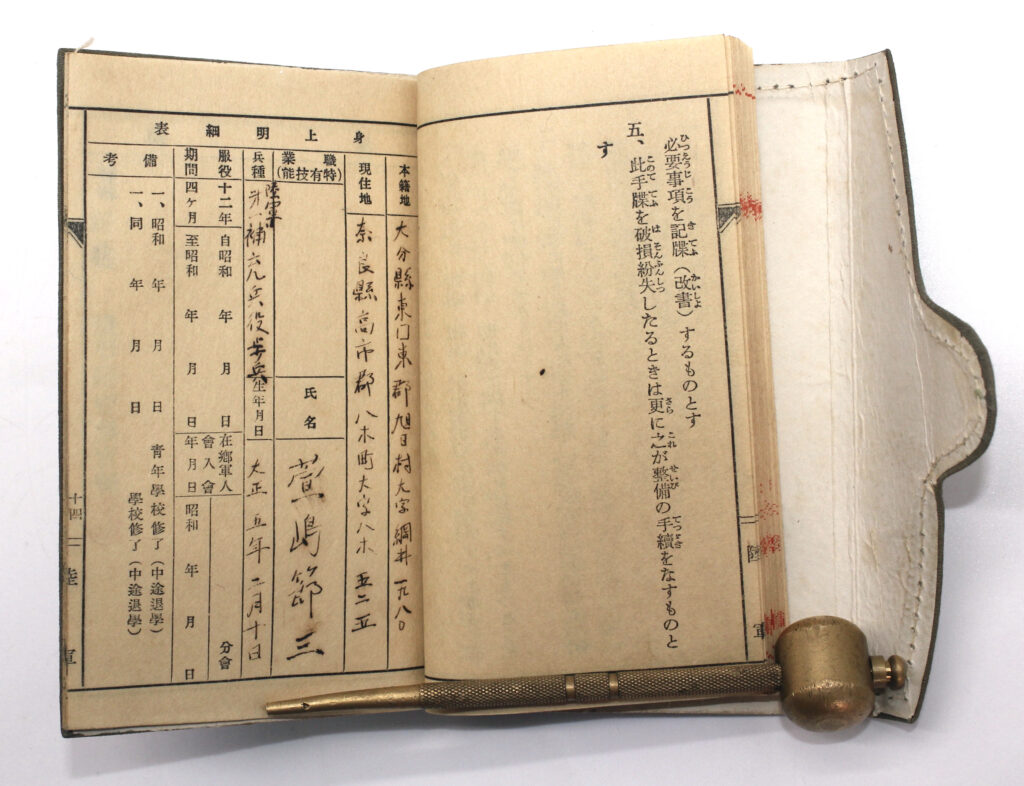 必要事項を記牒（改書）するものとす
五、此手牒を破損紛失したるときは更に之が整備の手續をなすものと
す
陸軍
身上明細表
本籍地 大分縣東国東郡旭日村大字綱井一九八〇
現住地 奈良縣高市郡八木町大字八木五二五
職業（特有技能）
氏名 萱嶋節三
兵種 陸軍 第一補充兵役歩兵
生年月日 大正五年二月十日
服役 十二年 自昭和 年 月 日 在郷軍人 分會
會入會
期間 四ヶ月 至昭和 年 月 日 年月日 昭和 年 月 日
備考
一、昭和 年 月 日 青年學校修了（中途退學）
一、同 年 月 日 學校修了（中途退學）
十四 陸軍